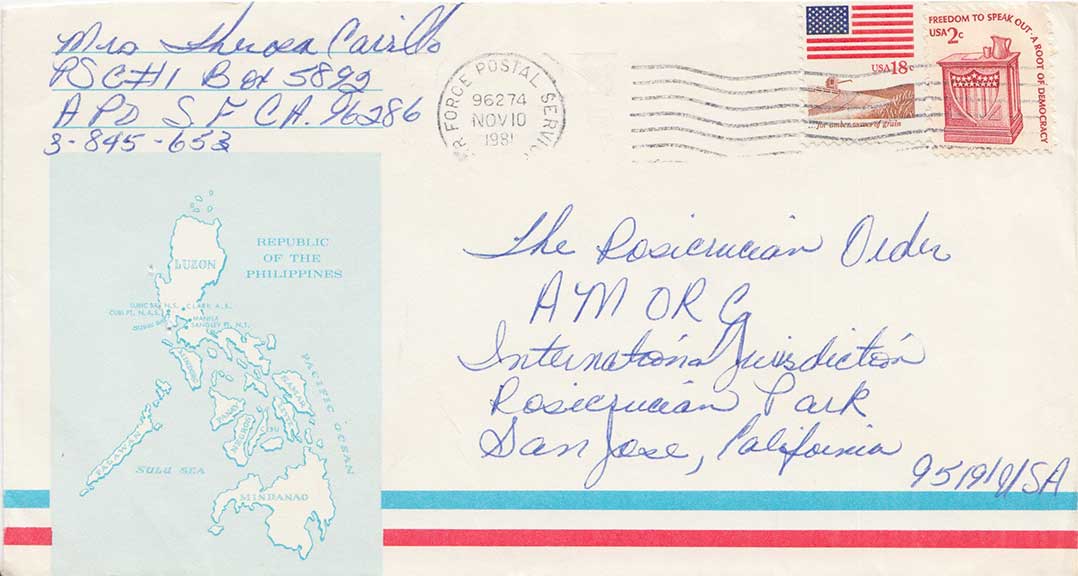 Mrs Theresa Carrillo
PSC#1 Box 5892
APO S.F CA. 96286
3-845-653
AIR FORCE POSTAL SERVICE
96274
NOV 10
1981
USA 18c
...for amber waves of grain
FREEDOM TO SPEAK OUT-A ROOT OF DEMOCRACY
USA 2c
The Rosicrucian Order
AMORC
International Jurisdiction
Rosicrucian Park
San Jose, California
95191 USA
REPUBLIC
OF THE
PHILIPPINES
LUZON
SUBIC BAY N.S.
CLARK A. B.
CUBI PT. N.A.S.
MANILA
SANGLEY PT. N.S.
MINDORO
SAMAR
PANAY
LEYTE
NEGROS
CEBU
PALAWAN
SULU SEA
MINDANAO
PACIFIC OCEAN